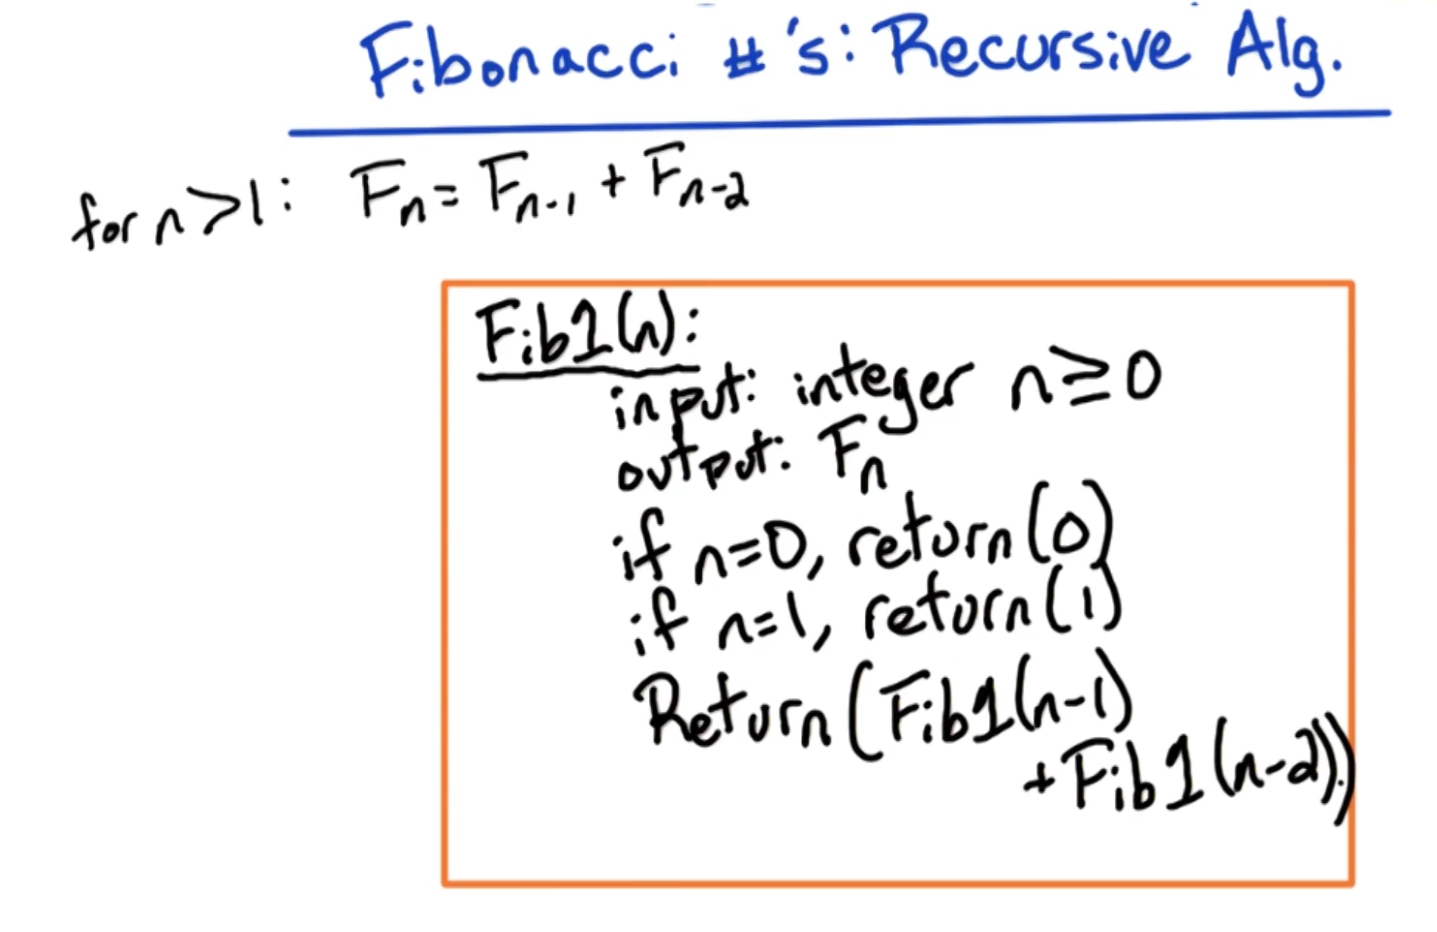 Fibonacci #'s: Recursive Alg.
for n>1: Fₙ = Fₙ₋₁ + Fₙ₋₂
Fib1(n):
input: integer n≥0
output: Fₙ
if n=0, return(0)
if n=1, return(1)
Return(Fib1(n-1)
+Fib1(n-2))